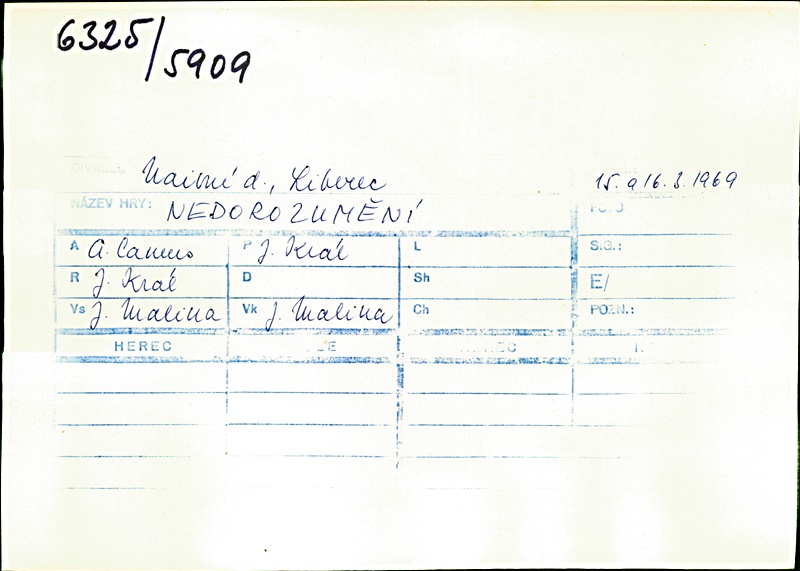 6325/5909
DIVADLO Naivní d., Liberec 15. a 16. 3. 1969
NÁZEV HRY: NEDOROZUMĚNÍ FOTO
A A. Camus P J. Král L S.G.:
R J. Král D Sh E/
Vs J. Malina Vk J. Malina Ch POZN.:
HEREC